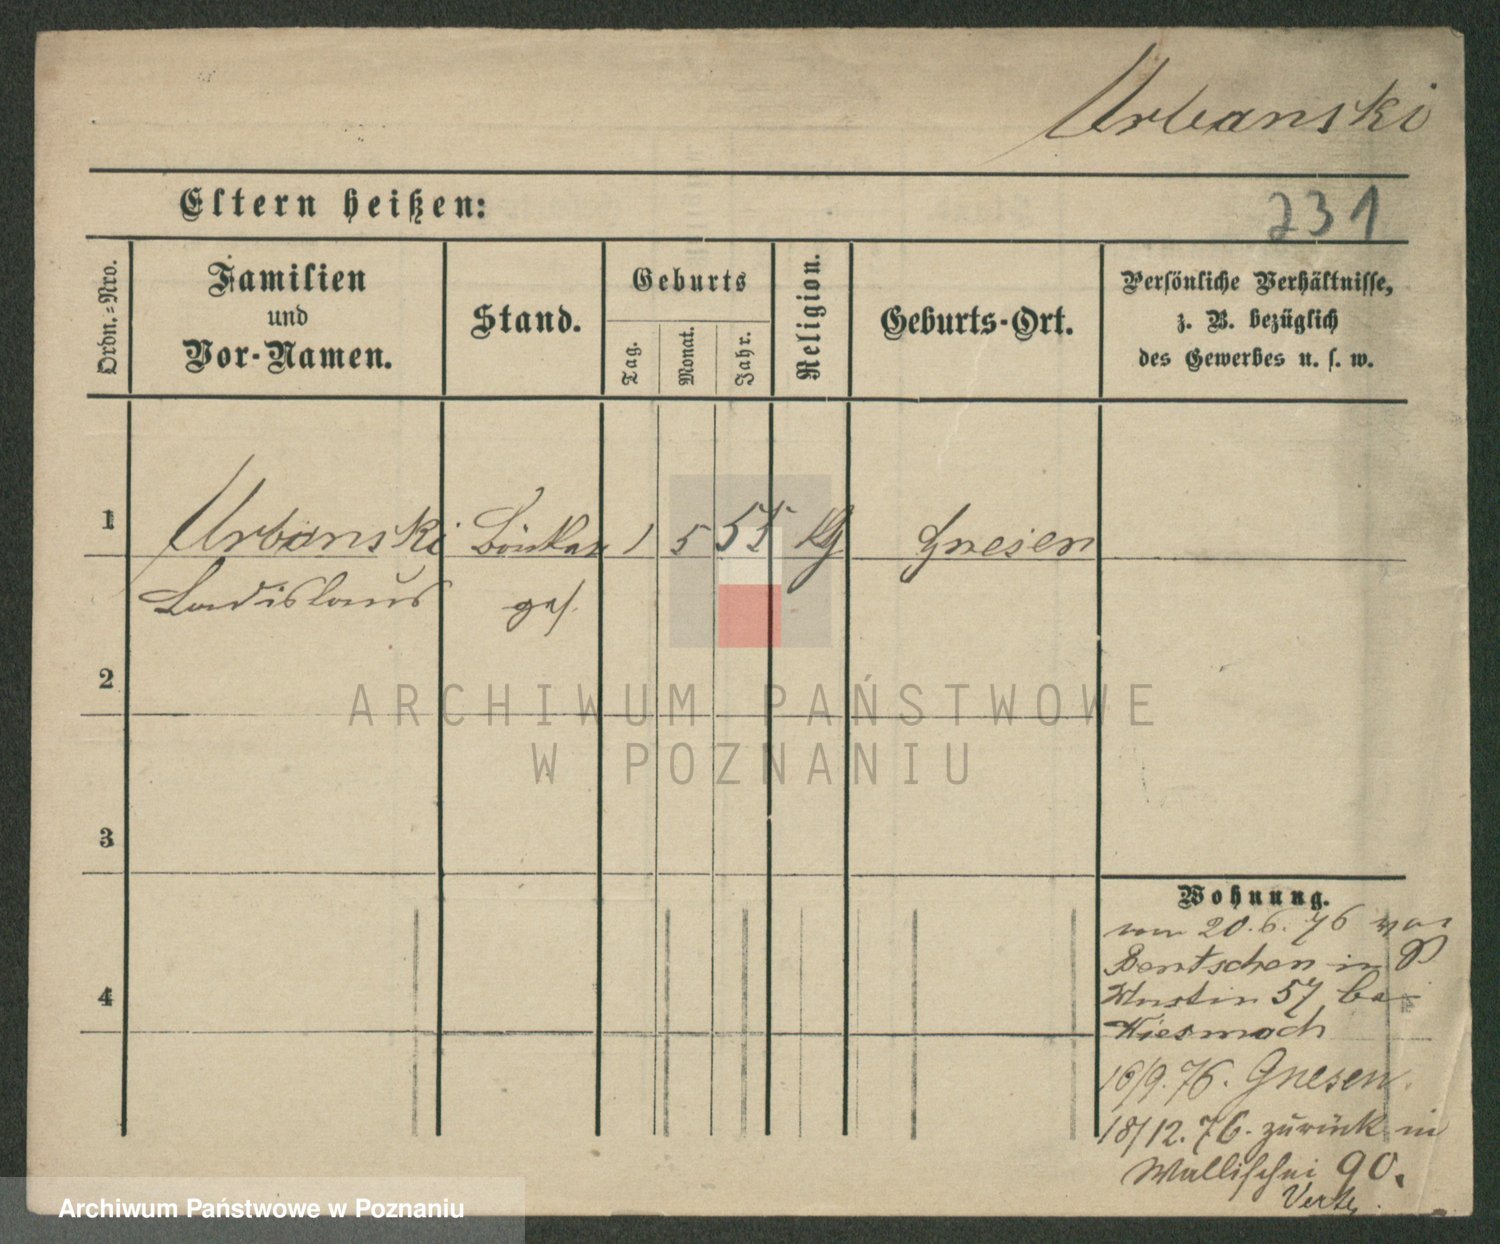 Urbanski
Eltern heißen:
231
Ordn.-Nro.
Familien
und
Vor-Namen.
Stand.
Geburts
Tag.
Monat.
Jahr.
Religion.
Geburts-Ort.
Persönliche Verhältnisse,
z. B. bezüglich
des Gewerbes u. s. w.
1
Urbanski
Ladislaus
ges.
1
5
55
Gnesen
2
3
4
Wohnung.
vom 20. 6. 76 von
Bentschen in
57 bei
16/9. 76. Gnesen.
18/12. 76. zurück in
Wallischei 90.
Verte.
ARCHIWUM PAŃSTWOWE
W POZNANIU
Archiwum Państwowe w Poznaniu